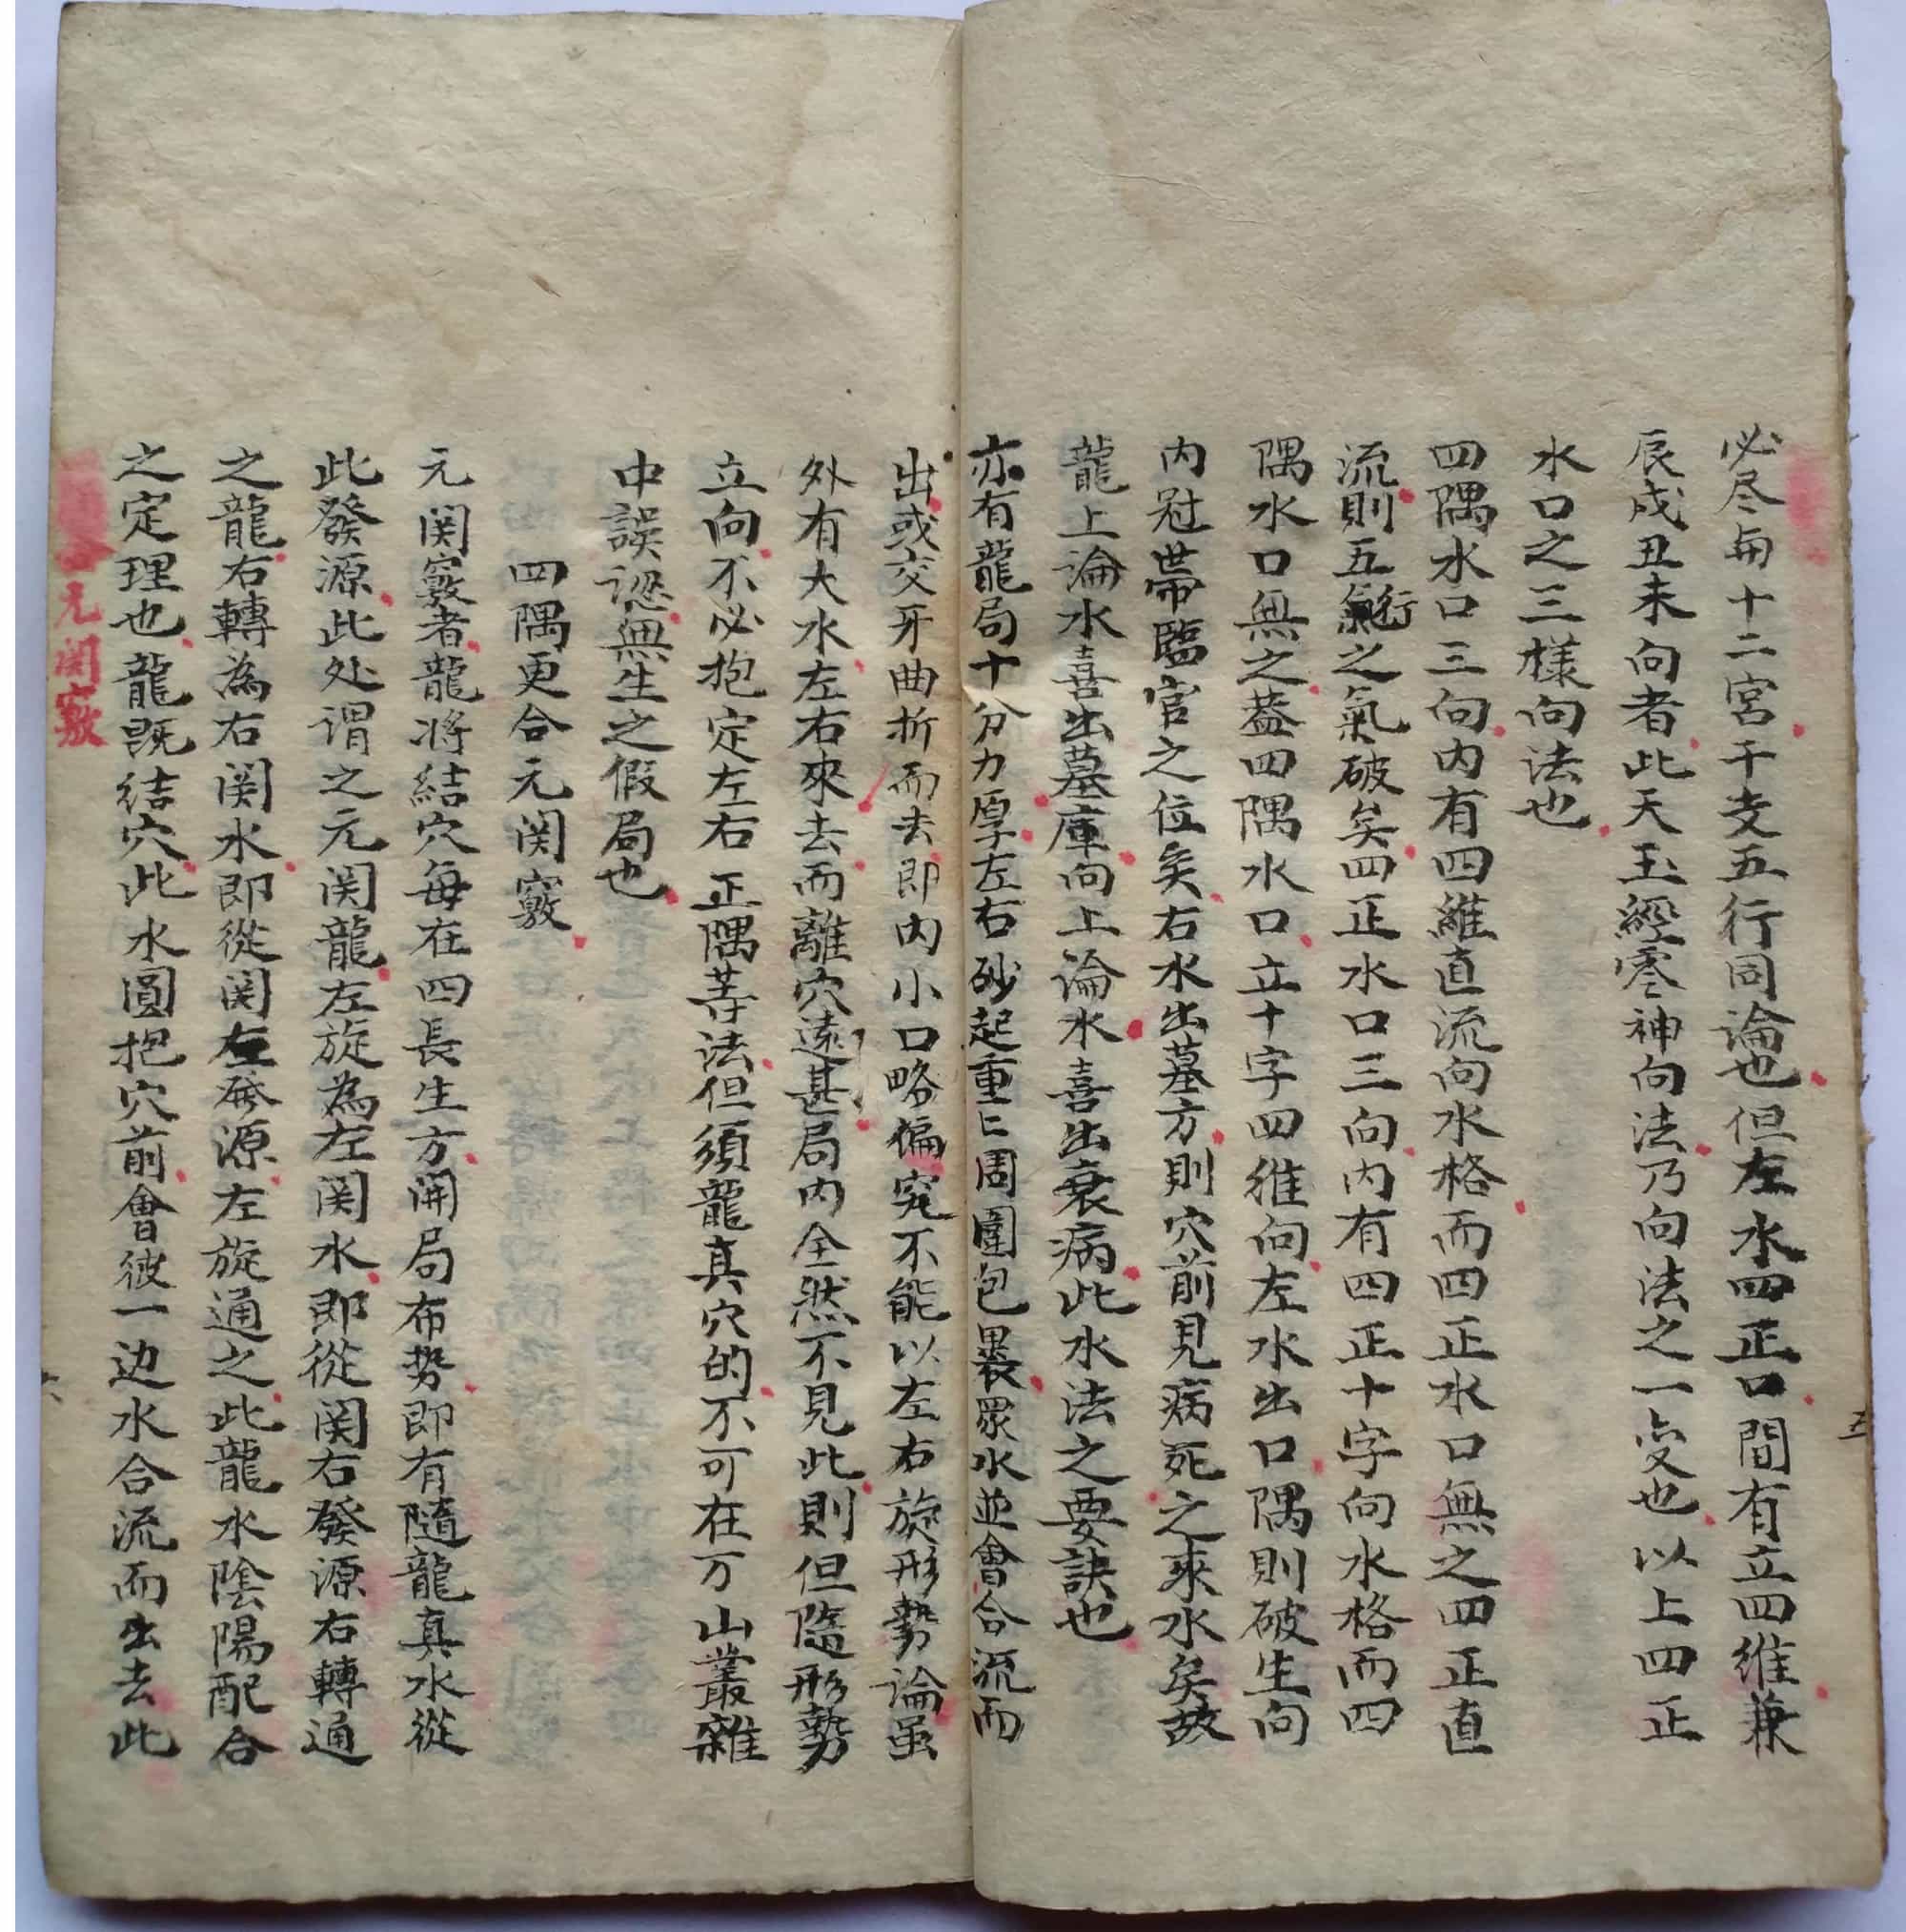 必尽每十二宮干支五行同論也但左水四正口間有立四維兼
辰戍丑未向者此天玉經零神向法乃向法之一变也以上四正
水口之三樣向法也
四隅水口三向内有四維直流向水格而四正水口無之四正直
流則五行之氣破矣四正水口三向内有四正十字向水格而四
隅水口無之葢四隅水口立十字四維向左水出口隅則破生向
内冠帶臨官之位矣右水出墓方則穴前見病死之來水矣故
龍上論水喜出墓庫向上論水喜出衰病此水法之要訣也
亦有龍局十分力厚左右砂起重匕周圍包裹眾水並會合流而
出或交牙曲折而去即内小口略偏究不能以左右旋形勢論虽
外有大水左右來去而離穴遠甚局内全然不見此則但隨形勢
立向不必抱定左右正隅等法但須龍真穴的不可在万山叢雜
中誤認無生之假局也
四隅更合元関竅
元関竅者龍将結穴每在四長生方開局布势即有隨龍真水從
此發源此处谓之元関龍左旋為左関水即從関右發源右轉通
之龍右轉為右関水即從関左發源左旋通之此龍水陰陽配合
之定理也龍既结穴此水圓抱穴前會彼一边水合流而出去此
元関竅
五